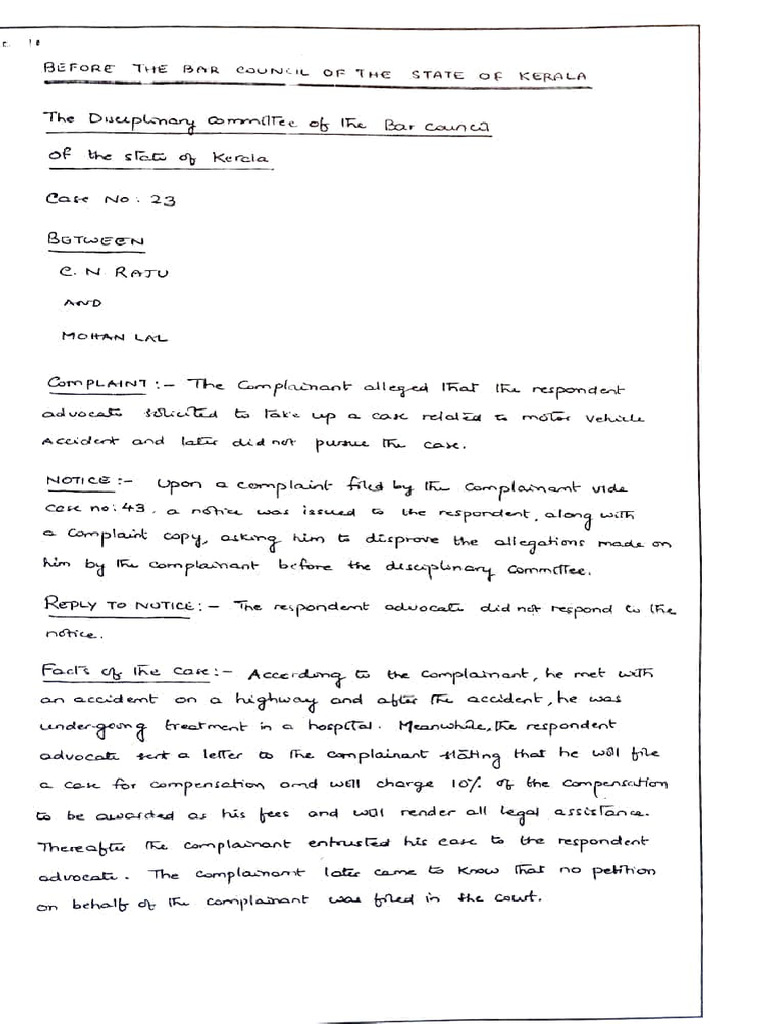 BEFORE THE BAR COUNCIL OF THE STATE OF KERALA
The Disciplinary committee of the Bar council
of the state of Kerala
Case No: 23
BETWEEN
C. N. RAJU
AND
MOHAN LAL
COMPLAINT :- The Complainant alleged that the respondent
advocate solicited to take up a case related to motor vehicle
Accident and later did not pursue the case.
NOTICE :- Upon a complaint filed by the complainant vide
case no: 43, a notice was issued to the respondent, along with
a complaint copy, asking him to disprove the allegations made on
him by the complainant before the disciplinary committee.
REPLY TO NOTICE :- The respondent advocate did not respond to the
notice.
Facts of the case :- According to the complainant, he met with
an accident on a highway and after the accident, he was
under-going treatment in a hospital. Meanwhile, the respondent
advocate sent a letter to the complainant stating that he will file
a case for compensation and will charge 10% of the compensation
to be awarded as his fees and will render all legal assistance.
Thereafter the complainant entrusted his case to the respondent
advocate. The complainant later came to know that no petition
on behalf of the complainant was filed in the court.